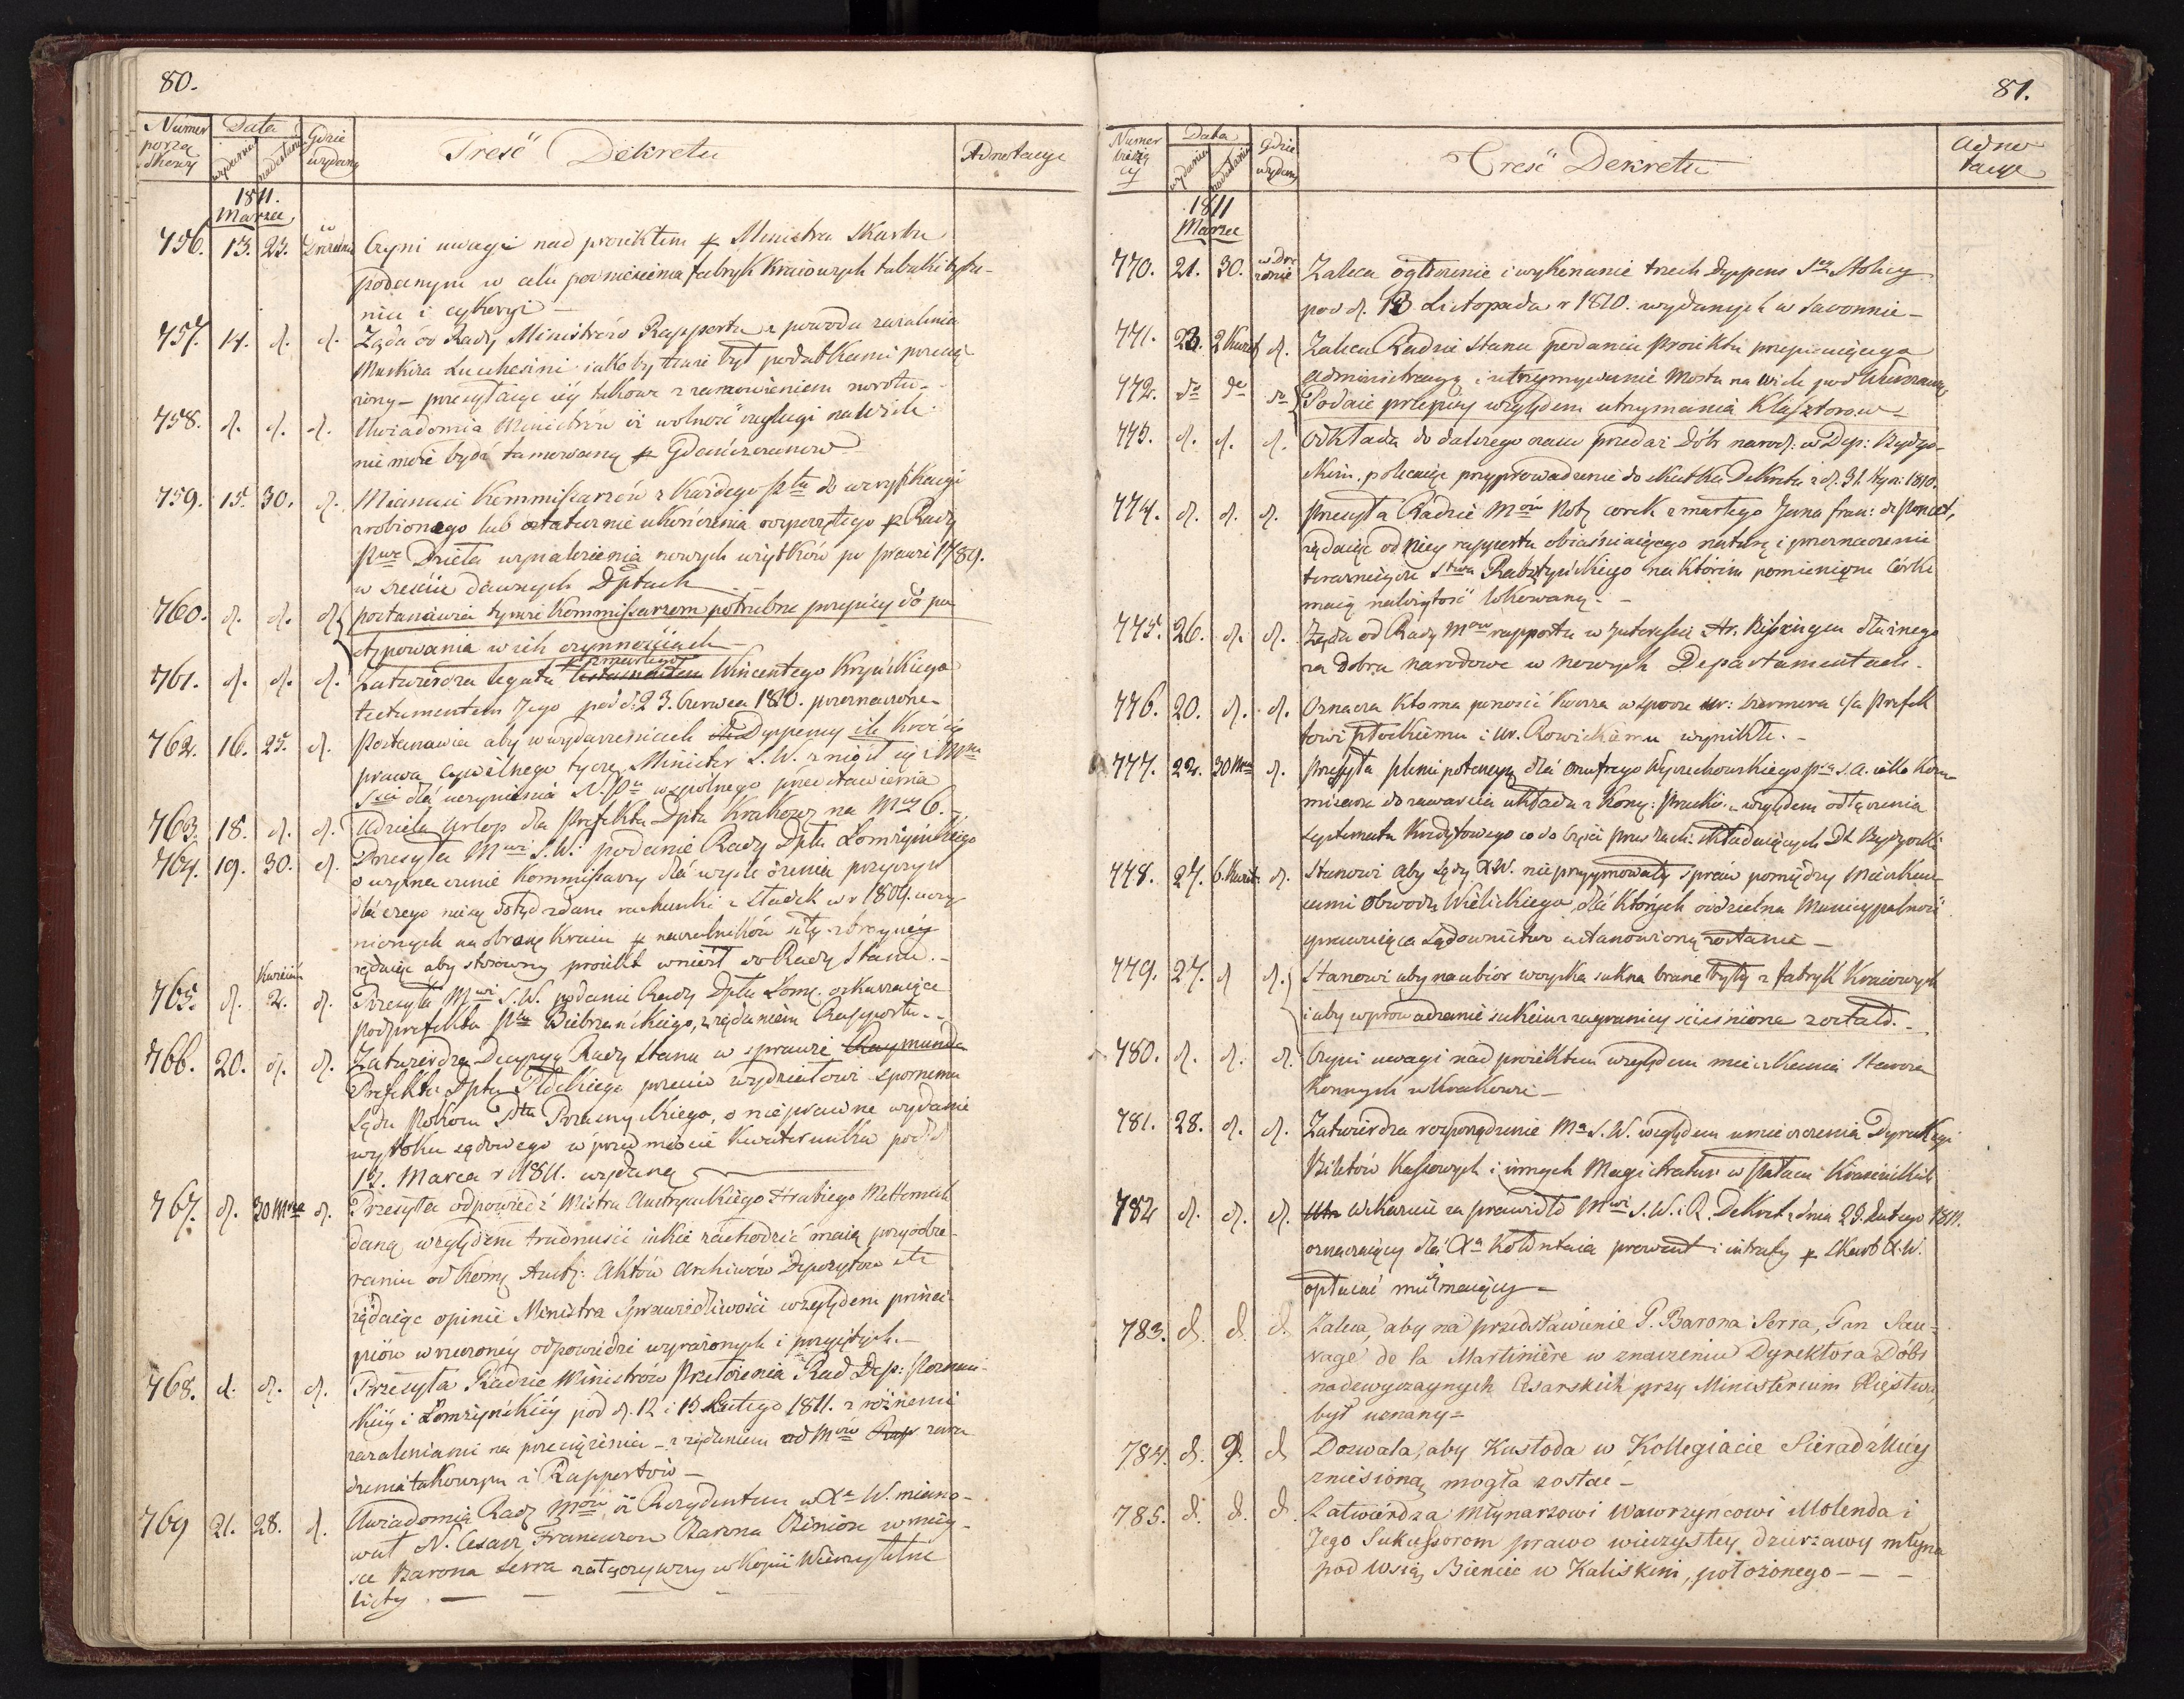 80.
Numer porządkowy
Data
wydania
nadesłania
Gdzie wydany
Treść Dekretu
Adnotacye
1811.
Marzec
756. 13. 23. w Dreznie Czyni uwagi nad proiektem p Ministra Skarbu
podanym w celu podniesienia fabryk kraiowych tabaki tytu-
niu i cykoryi —
757. 14. d. d. Żąda od Rady Ministrów Rapportu z powodu zażalenia
Markiza Luchesini iakoby tenże był podatkami przecią-
żony — przesyłaiąc iéy takowe z zamówieniem zwrotu. -
758. d. d. d. Uwiadomia Ministrów iż wolność żeglugi na Wiśle
nie może bydź tamowaną p Gdańszczanów
759. 15. 30. d. Mianuie Kommissarzów z każdego Ptu do weryfikacyi
zrobionego lub ostatecznie ukończenia rozpoczętego p Rady
Pwe Dzieła wynalezienia nowych użytków po prawie 1789.
w sześciu dawnych Dptach
760. d. d. d. postanawia tymże Kommissarzom potrzebne przepisy do po
stępowania w ich czynnościach
761. d. d. d. Zatwierdza legata p zmarłego testamentem Wincentego Krysińskiego
testamentem Jego pod d. 23. Czerwca 1810. przeznaczone
762. 16. 25. d. Postanawia aby w wydarzeniach Dyspensy ile kroć się
prawa cywilnego tyczą Minister S.W. zniósł się z Mrem
Sści dla uczynienia N. Pu wspólnego przedstawienia
763. 18. d. d. Udziela urlop dla Prefekta Dptu Krakows na Mcy 6. -
764. 19. 30. d. Przesyła Mwi S.W. podanie Rady Dptu Łomżyńskiego
o wyznaczenie Kommissarzy dla wyśledzenia przyczyn
dla czego nie są dotąd zdane rachunki z składek w r 1809. uczy
nionych na obronę Kraiu p naczelników siły zbroynéy
żądaiąc aby stosowny proiekt wniósł do Rady Stanu. -
Kwietnia
765. d. 2. d. Przesyła Mwi S.W. podanie Rady Dptu Łomż. oskarżaiące
podprefekta Ptu Biebrzańskiego, z żądaniem Rapportu. -
766. 20. d. d. Zatwierdza Decyzyą Rady Stanu w sprawie Raymunda
Prefekta Dptu Płockiego przeciw wydziałowi spornemu
Sądu Pokoiu Ptu Przasnyskiego, o nieprawne wydanie
wyroku sądowego w przedmiocie kwaterunku pod d
13. Marca r 1811. wydaną
767. d. 30 Mrca d. Przesyła odpowiedź Mistra Austryackiego Hrabiego Metternich
daną względem trudności iakie zachodzić maią przy odbie-
raniu od Komy Austr: Aktów Archiwów Depozytów etc
żądaiąc opinii Ministra Sprawiedliwości względem princi-
piów w rzeczonéy odpowiedzi wyrażonych i przyiętych. -
768. d. d. d. Przesyła Radzie Ministrów Przełożenia Rad Dep: Poznań-
skiéy i Łomżyńskiéy pod d. 12 i 15 Lutego 1811. z różnemi
zażaleniami na przeciążenia — z żądaniem od Mów Rap zwró
cenia takowym i Rapportów —
769 21. 28. d. Uwiadomia Radę Mów iż Rezydentem w Xie W. miano-
wał N. Cesarz Francuzów Barona Bignon w miey-
sce Barona Serra załączywszy w kopii Wierzytelne
listy . — — -
81.
Numer bieżący
Data
wydania
nadesłania
Gdzie wydany
Treść Dekretu
Adnotacye
1811
Marzec
770. 21. 30. w Dreznie Zaleca ogłoszenie i wykonanie trzech Dyspens Sey Stolicy
pod d. 13. Listopada r 1810. wydanych w Savonnie —
771. 23. 2 Kwiet d. Zaleca Radzie Stanu podania Proiektu przepisuiącego
administracyą i utrzymywanie Mostu na Wiśle pod Warszawą
772. do do do Podaie przepisy względem utrzymania Klasztorów —
773. d. d. d. Odkłada do dalszego czasu przedaż Dóbr narod: w Dep: Bydgo-
skim. polecaiąc przyprowadzenie do skutku Dekretu z d. 31. Stycz: 1810.
774. d. d. d. Przesyła Radzie Mów Notę corek zmarłego Jana Fran: de Poncet,
żądaiąc od niey rapportu obiaśniaiącego naturę i przeznaczenie
teraznieysze Stwa Rabsztyńskiego na którém pomienione Córki
maią należytość lokowaną. -
775. 26. d. d. Żąda od Rady Mów rapportu w Interessie Hr. Bissingen dłużnego
za dobra narodowe w nowych Departamentach.
776. 20. d. d. Oznacza kto ma ponosić koszta w sporze ur: Szermera c/a Prefek
towi Płockiemu i Ur. Rowickiemu wynikłe. -
777. 22. 30 Mca d. Przesyła plenipotencyą dla Onufrego Wyczechowskiego Psa S.A. iako Kom-
misarza do zawarcia układu z Komy: Pruskie. względem odłączenia
systematu Kredytowego co do Części Prus Zach: składaiących Dt Bydgoski
778. 24. 6. Kwiet. d. Stanowi aby Sądy X.W. nie przyymowały spraw pomiędzy Mieszkań-
cami Obwodu Wielickiego, dla których oddzielna Municypalność
sprawuiąca Sądownictwo ustanowioną zostanie —
779. 27. d d. Stanowi aby na ubiór woyska sukna brane były z fabryk Kraiowych
i aby wprowadzenie sukien z zagranicy ścieśnione zostało. -
780. d. d. d. Czyni uwagi nad proiektem względem mieszkania Starozakonnych w Krakowie —
781. 28. d. d. Zatwierdza rozporządzenie Ma S.W. względem umieszczenia Dyrekcyi
Biletów Kassowych i innych Magistratur w Pałacu Krasińskich
782 d. d. d. Wskazuie za prawidło Mwi S.W. i R. Dekret z dnia 29. Lutego 1811.
oznaczaiący dla Xa Kołłontaia prowent i intraty p Skarb X.W.
opłacać się maiący —
783. d. d. d. Zaleca, aby na przedstawienie P. Barona Serra, Pan Sau-
vage de la Martinière w znaczeniu Dyrektora Dóbr
nadzwyczaynych Cesarskich przy Ministerium Xięstwa,
był uznany =
784. d. d. d Dozwala, aby Kustoda w Kollegiacie Sieradzkiéy
zniesioną mogła zostać —
785. d. d. d. Zatwierdza Młynarzowi Wawrzyńcowi Molenda i
Jego Sukcessorom prawo wieczystey dzierżawy młyna
pod wsią Bieniec w Kaliskim, położonego — — —